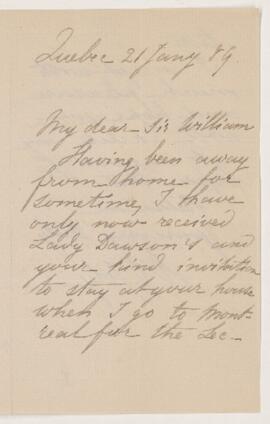 Quebec 21 Jany 89.
My dear Sir William
Having been away
from home for
sometime, I have
only now received
Lady Dawson's and
your kind invitation
to stay at your house
when I go to Mont-
real for the Lec-